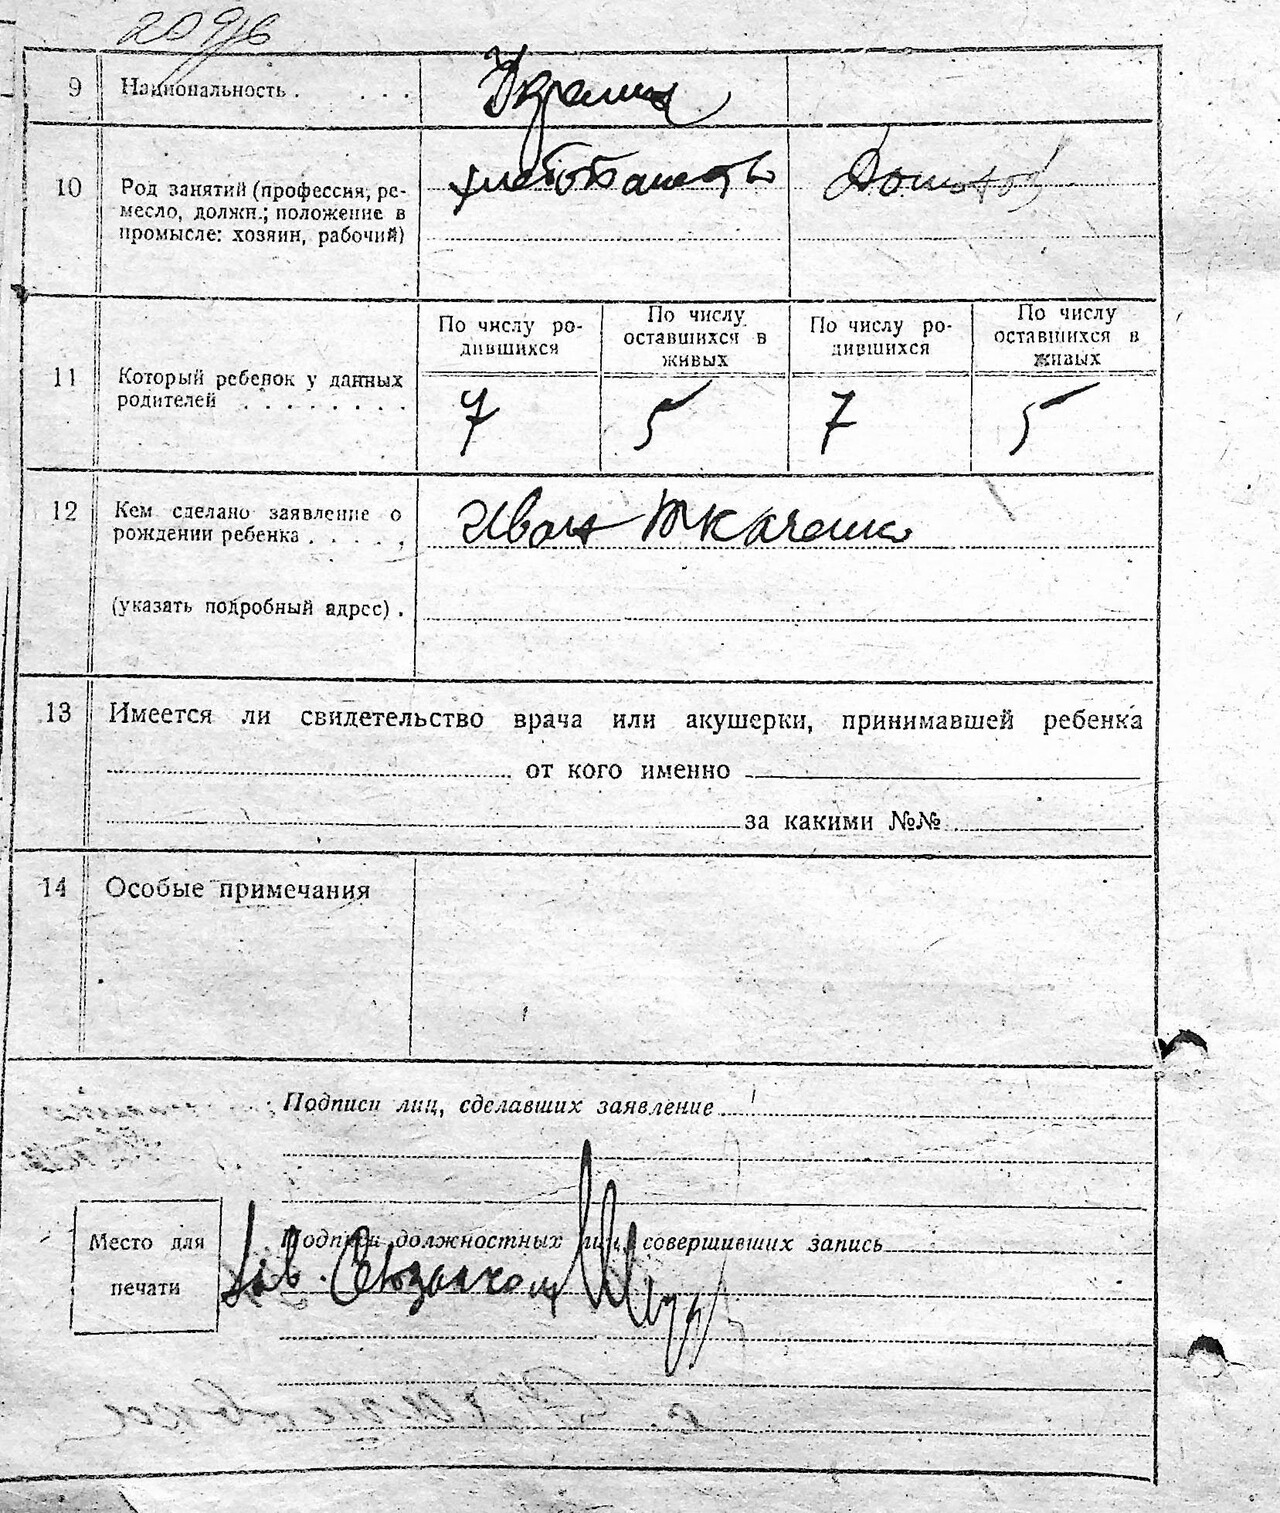 9 Национальность . . . . Украинц
10 Род занятий (профессия, ре-
месло, должн.; положение в
промысле: хозяин, рабочий)
хлебопашество
11 Который ребенок у данных
родителей . . . . . . . .
По числу ро-
дившихся
По числу
оставшихся в
живых
По числу ро-
дившихся
По числу
оставшихся в
живых
7 5 7 5
12 Кем сделано заявление о
рождении ребенка . . . . .
Иван Ткаченко
(указать подробный адрес) .
13 Имеется ли свидетельство врача или акушерки, принимавшей ребенка
от кого именно
за какими №№
14 Особые примечания
Подписи лиц, сделавших заявление
Место для
печати
Подписи должностных лиц, совершивших запись
Зав.